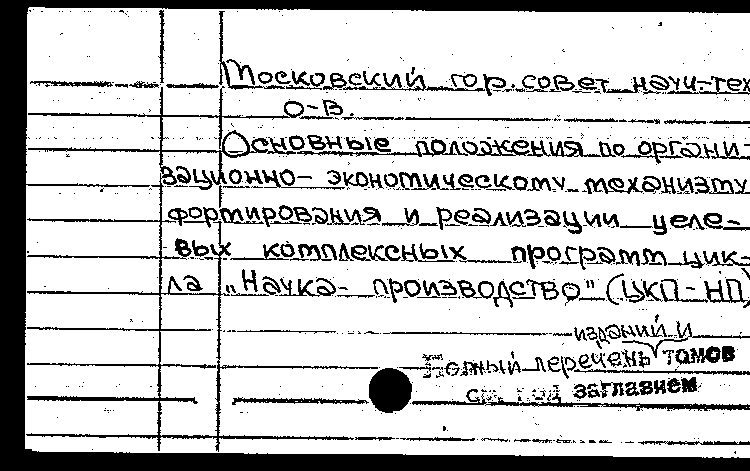 Московский гор. совет науч-тех
о-в.
Основные положения по органи-
зационно- экономическому механизму
формирования и реализации целе-
вых комплексных программ цик-
ла „Наука- производство" (ЦКП-НП)
изданий и
Полный перечень томов
см. под заглавием